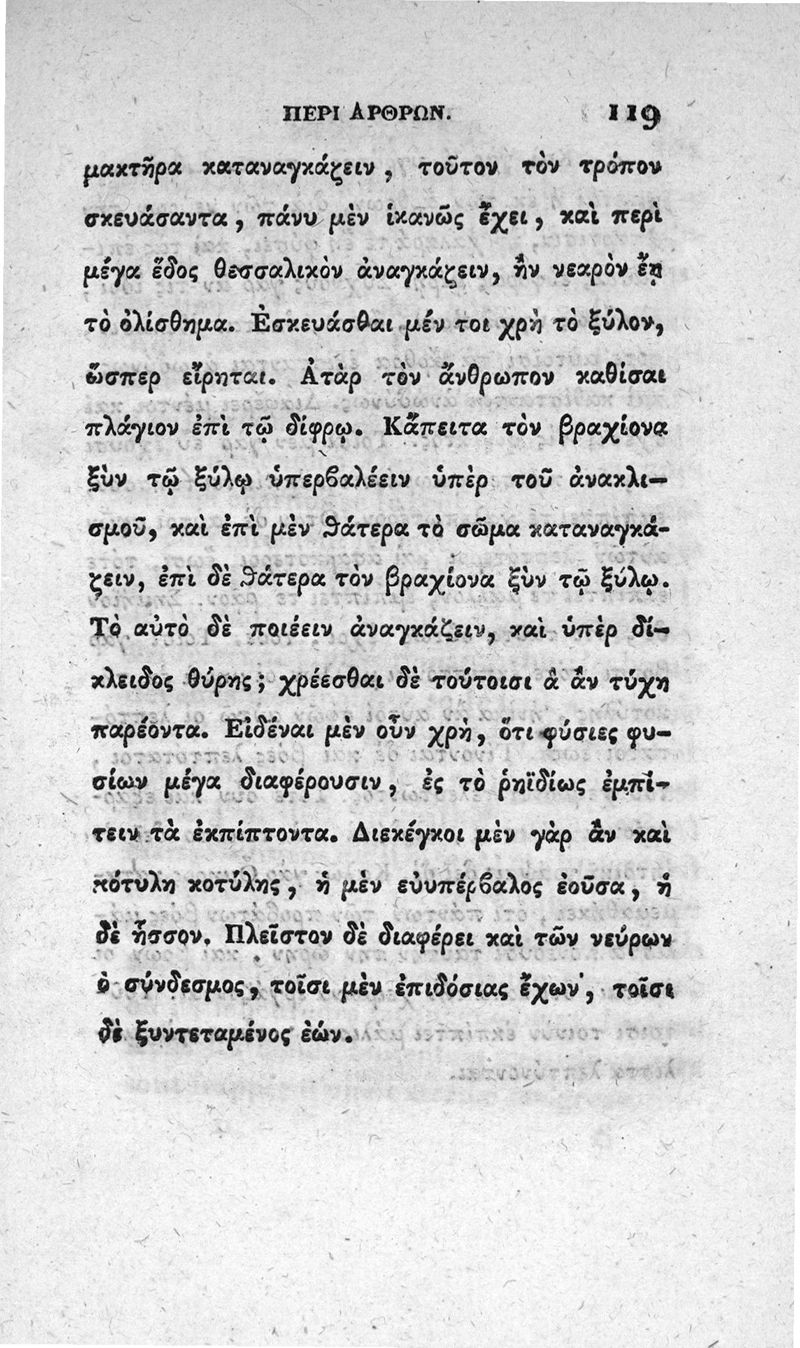 ΠΕΡΙ ΑΡΘΡΩΝ. 119
μακτῆρα καταναγκάζειν, τοῦτον τὸν τρόπον
σκευάσαντα, πάνυ μὲν ἱκανῶς ἔχει, καὶ περὶ
μέγα ἕδος θεσσαλικὸν ἀναγκάζειν, ἢν νεαρὸν ἔῃ
τὸ ὀλίσθημα. Ἐσκευάσθαι μέν τοι χρὴ τὸ ξύλον,
ὥσπερ εἴρηται. Ἀτὰρ τὸν ἄνθρωπον καθίσαι
πλάγιον ἐπὶ τῷ δίφρῳ. Κἄπειτα τὸν βραχίονα
ξὺν τῷ ξύλῳ ὑπερβαλέειν ὑπὲρ τοῦ ἀνακλι-
σμοῦ, καὶ ἐπὶ μὲν θάτερα τὸ σῶμα καταναγκά-
ζειν, ἐπὶ δὲ θάτερα τὸν βραχίονα ξὺν τῷ ξύλῳ.
Τὸ αὐτὸ δὲ ποιέειν ἀναγκάζειν, καὶ ὑπὲρ δί-
κλειδος θύρης; χρέεσθαι δὲ τούτοισι ἃ ἂν τύχῃ
παρέοντα. Εἰδέναι μὲν οὖν χρὴ, ὅτι φύσιες φυ-
σίων μέγα διαφέρουσιν, ἐς τὸ ῥηϊδίως ἐμπί-
τειν τὰ ἐκπίπτοντα. Διεκέγκοι μὲν γὰρ ἂν καὶ
κότυλη κοτύλης, ἡ μὲν εὐυπέρβαλος ἐοῦσα, ἡ
δὲ ἧσσον. Πλεῖστον δὲ διαφέρει καὶ τῶν νεύρων
ὁ σύνδεσμος, τοῖσι μὲν ἐπιδόσιας ἔχων, τοῖσι
δὲ ξυντεταμένος ἐών.